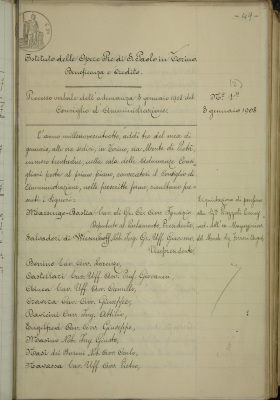 - 49 -
Istituto delle Opere Pie di S. Paolo in Torino
Beneficenza e Credito.
Processo verbale dell'adunanza 3 gennaio 1908 del
Consiglio di Amministrazione.
N.° 1°
3 gennaio 1908
L'anno millenovecentootto, addì tre del mese di
gennaio, alle ore sedici, in Torino, via Monte di Pietà
numero trentadue, nella sala delle Adunanze Consi-
gliari posta al primo piano, convocatosi il Consiglio di
Amministrazione, nelle prescritte forme, risultano pre-
senti i Signori:
Marsengo-Bastia Cav. di Gr. Cr. Avv. Ignazio
Deputato al Parlamento, Presidente,
Salvadori di Wiesenhoff Nob. Ing. Gr. Uff. Giacomo,
Vicepresidente
Borino Cav. Avv.
Castellari Cav. Uff. Avv. Prof. Giovanni,
Chiesa Cav. Uff. Avv. Camillo,
Cravero Cav. Avv. Giuseppe,
Daviani Cav. Ing. Attilio,
Engelfred Cav. Avv. Giuseppe,
Martini Nob. Ing. Guido,
Nasi dei Baroni Nob. Avv. Carlo,
Navassa Cav. Uff. Avv. Pietro,